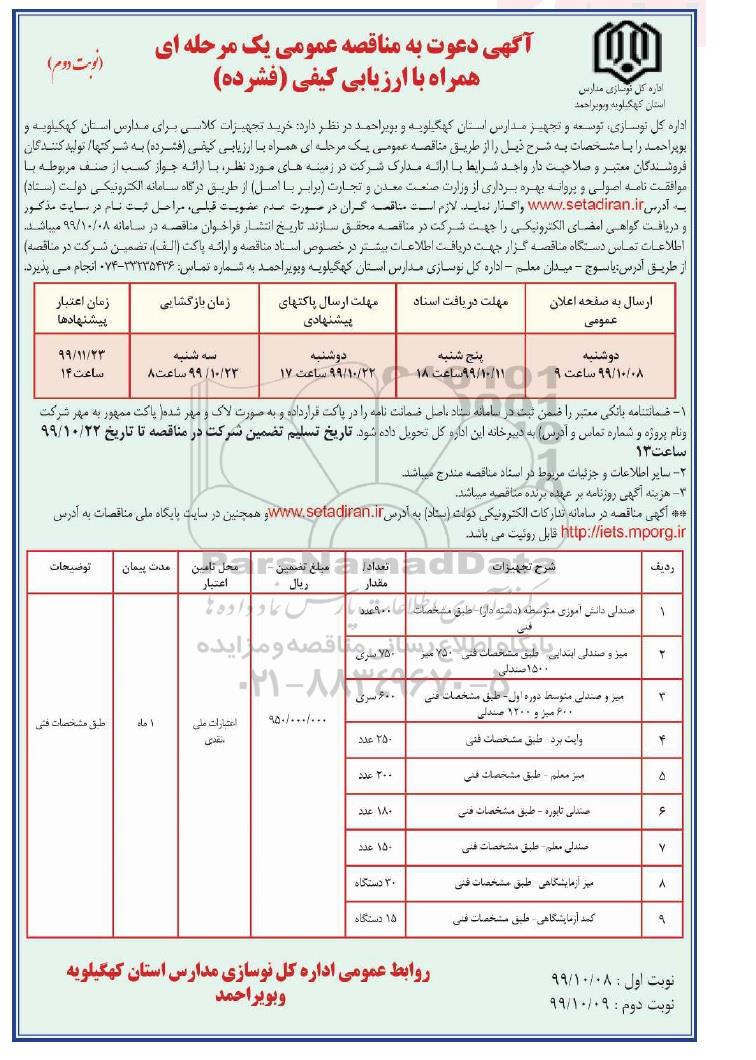 آگهی دعوت به مناقصه عمومی یک مرحله ای
همراه با ارزیابی کیفی (فشرده)
(نوبت دوم)
اداره کل نوسازی مدارس
استان کهگیلویه وبویراحمد
اداره کل نوسازی، توسعه و تجهیز مدارس استان کهگیلویه و بویراحمد در نظر دارد: خرید تجهیزات کلاسی برای مدارس استان کهگیلویه و
بویراحمد را با مشخصات به شرح ذیل را از طریق مناقصه عمومی یک مرحله ای همراه با ارزیابی کیفی (فشرده) به شرکتها/ تولیدکنندگان
فروشندگان معتبر و صلاحیت دار واجد شرایط با ارائه مدارک شرکت در زمینه های مورد نظر، با ارائه جواز کسب از صنف مربوطه یا
موافقت نامه اصولی و پروانه بهره برداری از وزارت صنعت معدن و تجارت (برابر با اصل) از طریق درگاه سامانه الکترونیکی دولت (ستاد)
به آدرس www.setadiran.ir واگذار نماید. لازم است مناقصه گران در صورت عدم عضویت قبلی، مراحل ثبت نام در سایت مذکور
و دریافت گواهی امضای الکترونیکی را جهت شرکت در مناقصه محقق سازند. تاریخ انتشار فراخوان مناقصه در سامانه ۹۹/۱۰/۰۸ میباشد.
اطلاعات تماس دستگاه مناقصه گزار جهت دریافت اطلاعات بیشتر در خصوص اسناد مناقصه و ارائه پاکت (الف)، تضمین شرکت در مناقصه)
از طریق آدرس:یاسوج - میدان معلم - اداره کل نوسازی مدارس استان کهگیلویه وبویراحمد به شماره تماس: ۳۳۲۳۵۴۳۶-۰۷۴ انجام می پذیرد.
ارسال به صفحه اعلان عمومی | مهلت دریافت اسناد | مهلت ارسال پاکتهای پیشنهادی | زمان بازگشایی | زمان اعتبار پیشنهادها
دوشنبه ۹۹/۱۰/۰۸ ساعت ۹ | پنج شنبه ۹۹/۱۰/۱۱ساعت ۱۸ | دوشنبه ۹۹/۱۰/۲۲ ساعت ۱۷ | سه شنبه ۹۹/۱۰/۲۳ ساعت۸ | ۹۹/۱۱/۲۳ ساعت۱۴
۱- ضمانتنامه بانکی معتبر را ضمن ثبت در سامانه ستاد ،اصل ضمانت نامه را در پاکت قرارداده و به صورت لاک و مهر شده( پاکت ممهور به مهر شرکت
ونام پروژه و شماره تماس و آدرس) به دبیرخانه این اداره کل تحویل داده شود. تاریخ تسلیم تضمین شرکت در مناقصه تا تاریخ ۹۹/۱۰/۲۲
ساعت۱۳
۲- سایر اطلاعات و جزئیات مربوط در اسناد مناقصه مندرج میباشد.
۳- هزینه آگهی روزنامه بر عهده برنده مناقصه میباشد.
** آگهی مناقصه در سامانه تدارکات الکترونیکی دولت (ستاد) به آدرس www.setadiran.ir و همچنین در سایت پایگاه ملی مناقصات به آدرس
http://iets.mporg.ir قابل روئیت می باشد.
ردیف | شرح تجهیزات | تعداد/ مقدار | مبلغ تضمین - ریال | محل تامین اعتبار | مدت پیمان | توضیحات
۱ | صندلی دانش آموزی متوسطه (دسته دار)- طبق مشخصات فنی | ۹۰۰عدد
۲ | میز و صندلی ابتدایی - طبق مشخصات فنی- ۷۵۰ میز ۱۵۰۰صندلی | ۷۵۰ سری
۳ | میز و صندلی متوسط دوره اول- طبق مشخصات فنی ۶۰۰ میز و ۱۲۰۰ صندلی | ۶۰۰ سری
۹۵۰/۰۰۰/۰۰۰ | اعتبارات ملی نقدی | ۱ ماه | طبق مشخصات فنی
۴ | وایت برد- طبق مشخصات فنی | ۲۵۰ عدد
۵ | میز معلم - طبق مشخصات فنی | ۲۰۰ عدد
۶ | صندلی تابوره - طبق مشخصات فنی | ۱۸۰ عدد
۷ | صندلی معلم- طبق مشخصات فنی | ۱۵۰ عدد
۸ | میز آزمایشگاهی- طبق مشخصات فنی | ۳۰ دستگاه
۹ | کمد آزمایشگاهی- طبق مشخصات فنی | ۱۵ دستگاه
ParsNamadData
پایگاه اطلاع رسانی مناقصه و مزایده
۰۲۱-۸۸۳۴۹۶۷۰-۵
نوبت اول : ۹۹/۱۰/۰۸
نوبت دوم : ۹۹/۱۰/۰۹
روابط عمومی اداره کل نوسازی مدارس استان کهگیلویه
وبویراحمد